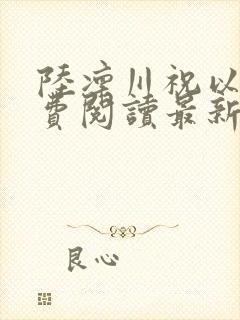 陸凜川祝以
費閱讀最新
良心